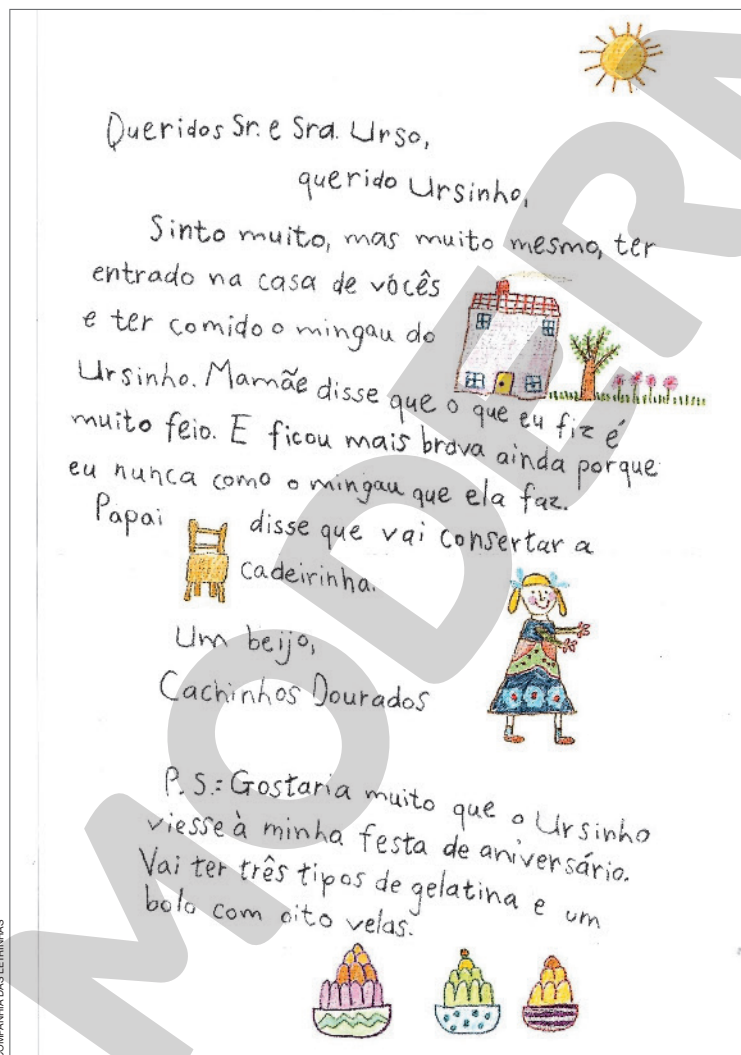 Queridos Sr. e Sra. Urso,
querido Ursinho,
Sinto muito, mas muito mesmo, ter
entrado na casa de vocês
e ter comido o mingau do
Ursinho. Mamãe disse que o que eu fiz é
muito feio. E ficou mais brava ainda porque
eu nunca como o mingau que ela faz.
Papai disse que vai consertar a
cadeirinha.
Um beijo,
Cachinhos Dourados
P.S.: Gostaria muito que o Ursinho
viesse à minha festa de aniversário.
Vai ter três tipos de gelatina e um
bolo com oito velas.
COMPANHIA DAS LETRINHAS
MODERN